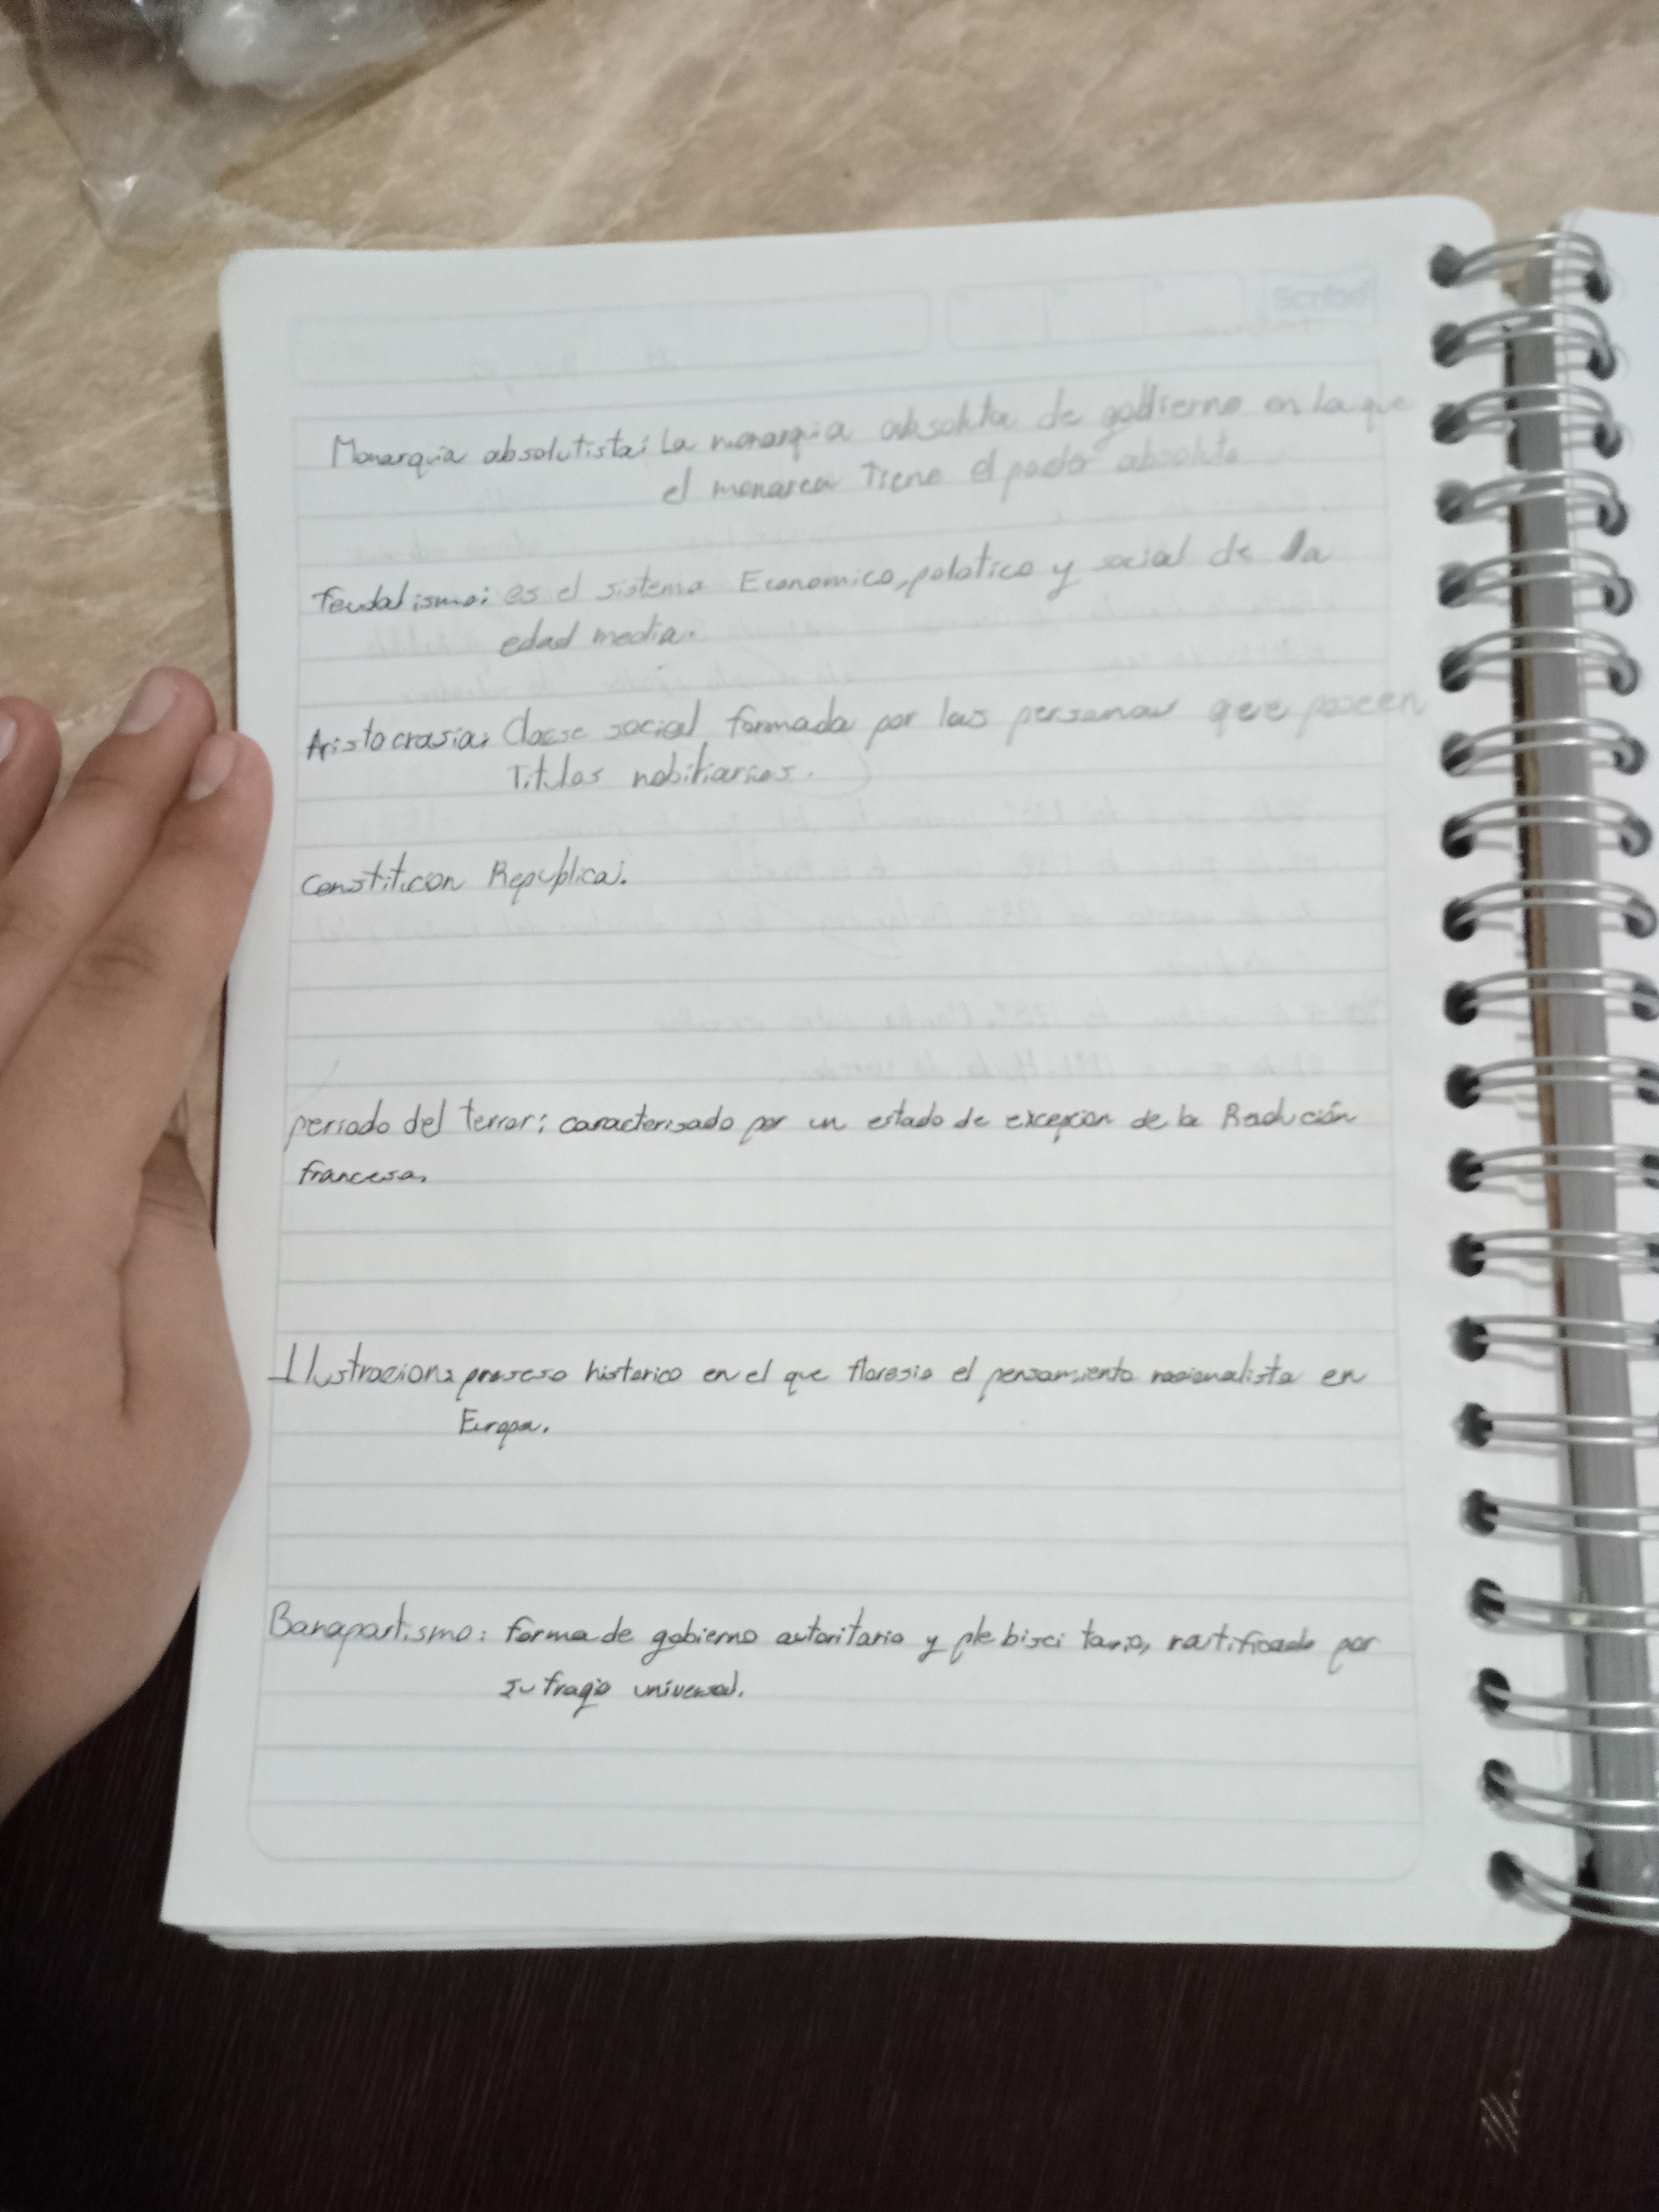 Monarquia absolutista: La monarquia absoluta de gobierno en la que
el monarca Tiene el poder absoluto
feudalismo: es el sistema Economico, polotico y social de la
edad media.
Aristocrasia: Clase social formada por las personas que poseen
Titulos nobiliarios.
Constitucion Republica:.
periodo del terror: caracterisado por un estado de excepcion de la Revolución
francesa.
Ilustracion: proseso historico en el que floresio el pensamiento rasionalista en
Europa.
Banapartismo: forma de gobierno autoritario y plebisci tario, ratificado por
sufragio universal.